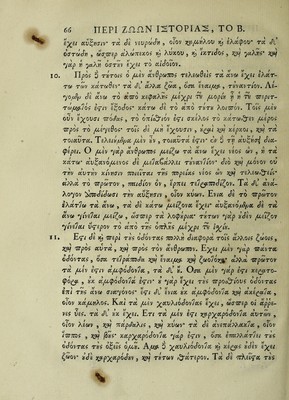 66 ΠΕΡΙ ΖΩΩΝ ΙΣΤΟΡΙΑΣ, ΤΟ Β.
ἔχει αὔξησιν· τὰ δὲ νευρώδη, οἷον καμήλου καὶ ἐλάφου· τὰ δ'
ὀστώδη, ὥσπερ ἀλώπεκος καὶ λύκου, καὶ ἴκτιδος, καὶ γαλῆς· καὶ
γὰρ ἡ γαλῆ ὀστοῦν ἔχει τὸ αἰδοῖον.
10. Πρὸς δὲ τούτοις ὁ μὲν ἄνθρωπος τελεωθεὶς τὰ ἄνω ἔχει ἐλάτ-
τω τῶν κάτωθεν· τὰ δ' ἄλλα ζῶα, ὅσα ἔναιμα, τοὐναντίον. Λέ-
γομεν δὲ ἄνω τὸ ἀπὸ κεφαλῆς μέχρι τοῦ μορίου ᾗ ἡ τοῦ περιτ-
τώματός ἐστιν ἔξοδος· κάτω δὲ τὸ ἀπὸ τούτου λοιπόν. Τοῖς μὲν
οὖν ἔχουσι πόδας, τὸ ὀπίσθιόν ἐστι σκέλος τὸ κάτωθεν μέρος
πρὸς τὸ μέγεθος· τοῖς δὲ μὴ ἔχουσιν, οὐραὶ καὶ κέρκοι, καὶ τὰ
τοιαῦτα. Τελειούμενα μὲν οὖν, τοιαῦτά ἐστιν· ἐν δὲ τῇ αὐξήσει δια-
φέρει. Ὁ μὲν γὰρ ἄνθρωπος μείζω τὰ ἄνω ἔχει νέος ὢν, ἢ τὰ
κάτω· αὐξανόμενος δὲ μεταβάλλει τοὐναντίον· διὸ καὶ μόνον οὐ
τὴν αὐτὴν κίνησιν ποιεῖται τῆς πορείας νέος ὢν καὶ τελεωθείς·
ἀλλὰ τὸ πρῶτον, παιδίον ὂν, ἕρπει τετραποδίζον. Τὰ δ' ἀνά-
λογον ἀποδίδωσι τὴν αὔξησιν, οἷον κύων. Ἔνια δὲ τὸ πρῶτον
ἐλάττω τὰ ἄνω, τὰ δὲ κάτω μείζονα ἔχει· αὐξανόμενα δὲ τὰ
ἄνω γίνεται μείζω, ὥσπερ τὰ λοφούρια· τούτων γὰρ οὐδὲν μεῖζον
γίνεται ὕστερον τὸ ἀπὸ τῆς ὁπλῆς μέχρι τοῦ ἰσχίου.
11. Ἔστι δὲ καὶ περὶ τοὺς ὀδόντας πολλὰ διαφορὰ τοῖς ἄλλοις ζώοις,
καὶ πρὸς αὑτὰ, καὶ πρὸς τὸν ἄνθρωπον. Ἔχει μὲν γὰρ πάντα
ὀδόντας, ὅσα τετράποδα καὶ ἔναιμα καὶ ζωοτόκα· ἀλλὰ πρῶτον
τὰ μέν ἐστιν ἀμφόδοντα, τὰ δ' οὔ. Ὅσα μὲν γάρ ἐστι κερατο-
φόρα, οὐκ ἀμφόδοντά ἐστιν· οὐ γὰρ ἔχει τοὺς προσθίους ὀδόντας
ἐπὶ τῆς ἄνω σιαγόνος· ἔστι δ' ἔνια οὐκ ἀμφόδοντα καὶ ἀκέρατα,
οἷον κάμηλος. Καὶ τὰ μὲν χαυλιόδοντας ἔχει, ὥσπερ οἱ ἄρρε-
νες ὗες. τὰ δ' οὐκ ἔχει. Ἔτι τὰ μέν ἐστι καρχαρόδοντα αὐτῶν,
οἷον λέων, καὶ πάρδαλις, καὶ κύων· τὰ δὲ ἀνεπάλλακτα, οἷον
ἵππος, καὶ βοῦς· καρχαρόδοντα γάρ ἐστιν, ὅσα ἐπαλλάττει τοὺς
ὀδόντας τοὺς ὀξεῖς. Ἅμα δὲ χαυλιόδοντα καὶ κέρας οὐδὲν ἔχει
ζῶον· οὐδὲ καρχαρόδουν, καὶ τούτων θάτερον. Τὰ δὲ πλεῖστα τοὺς